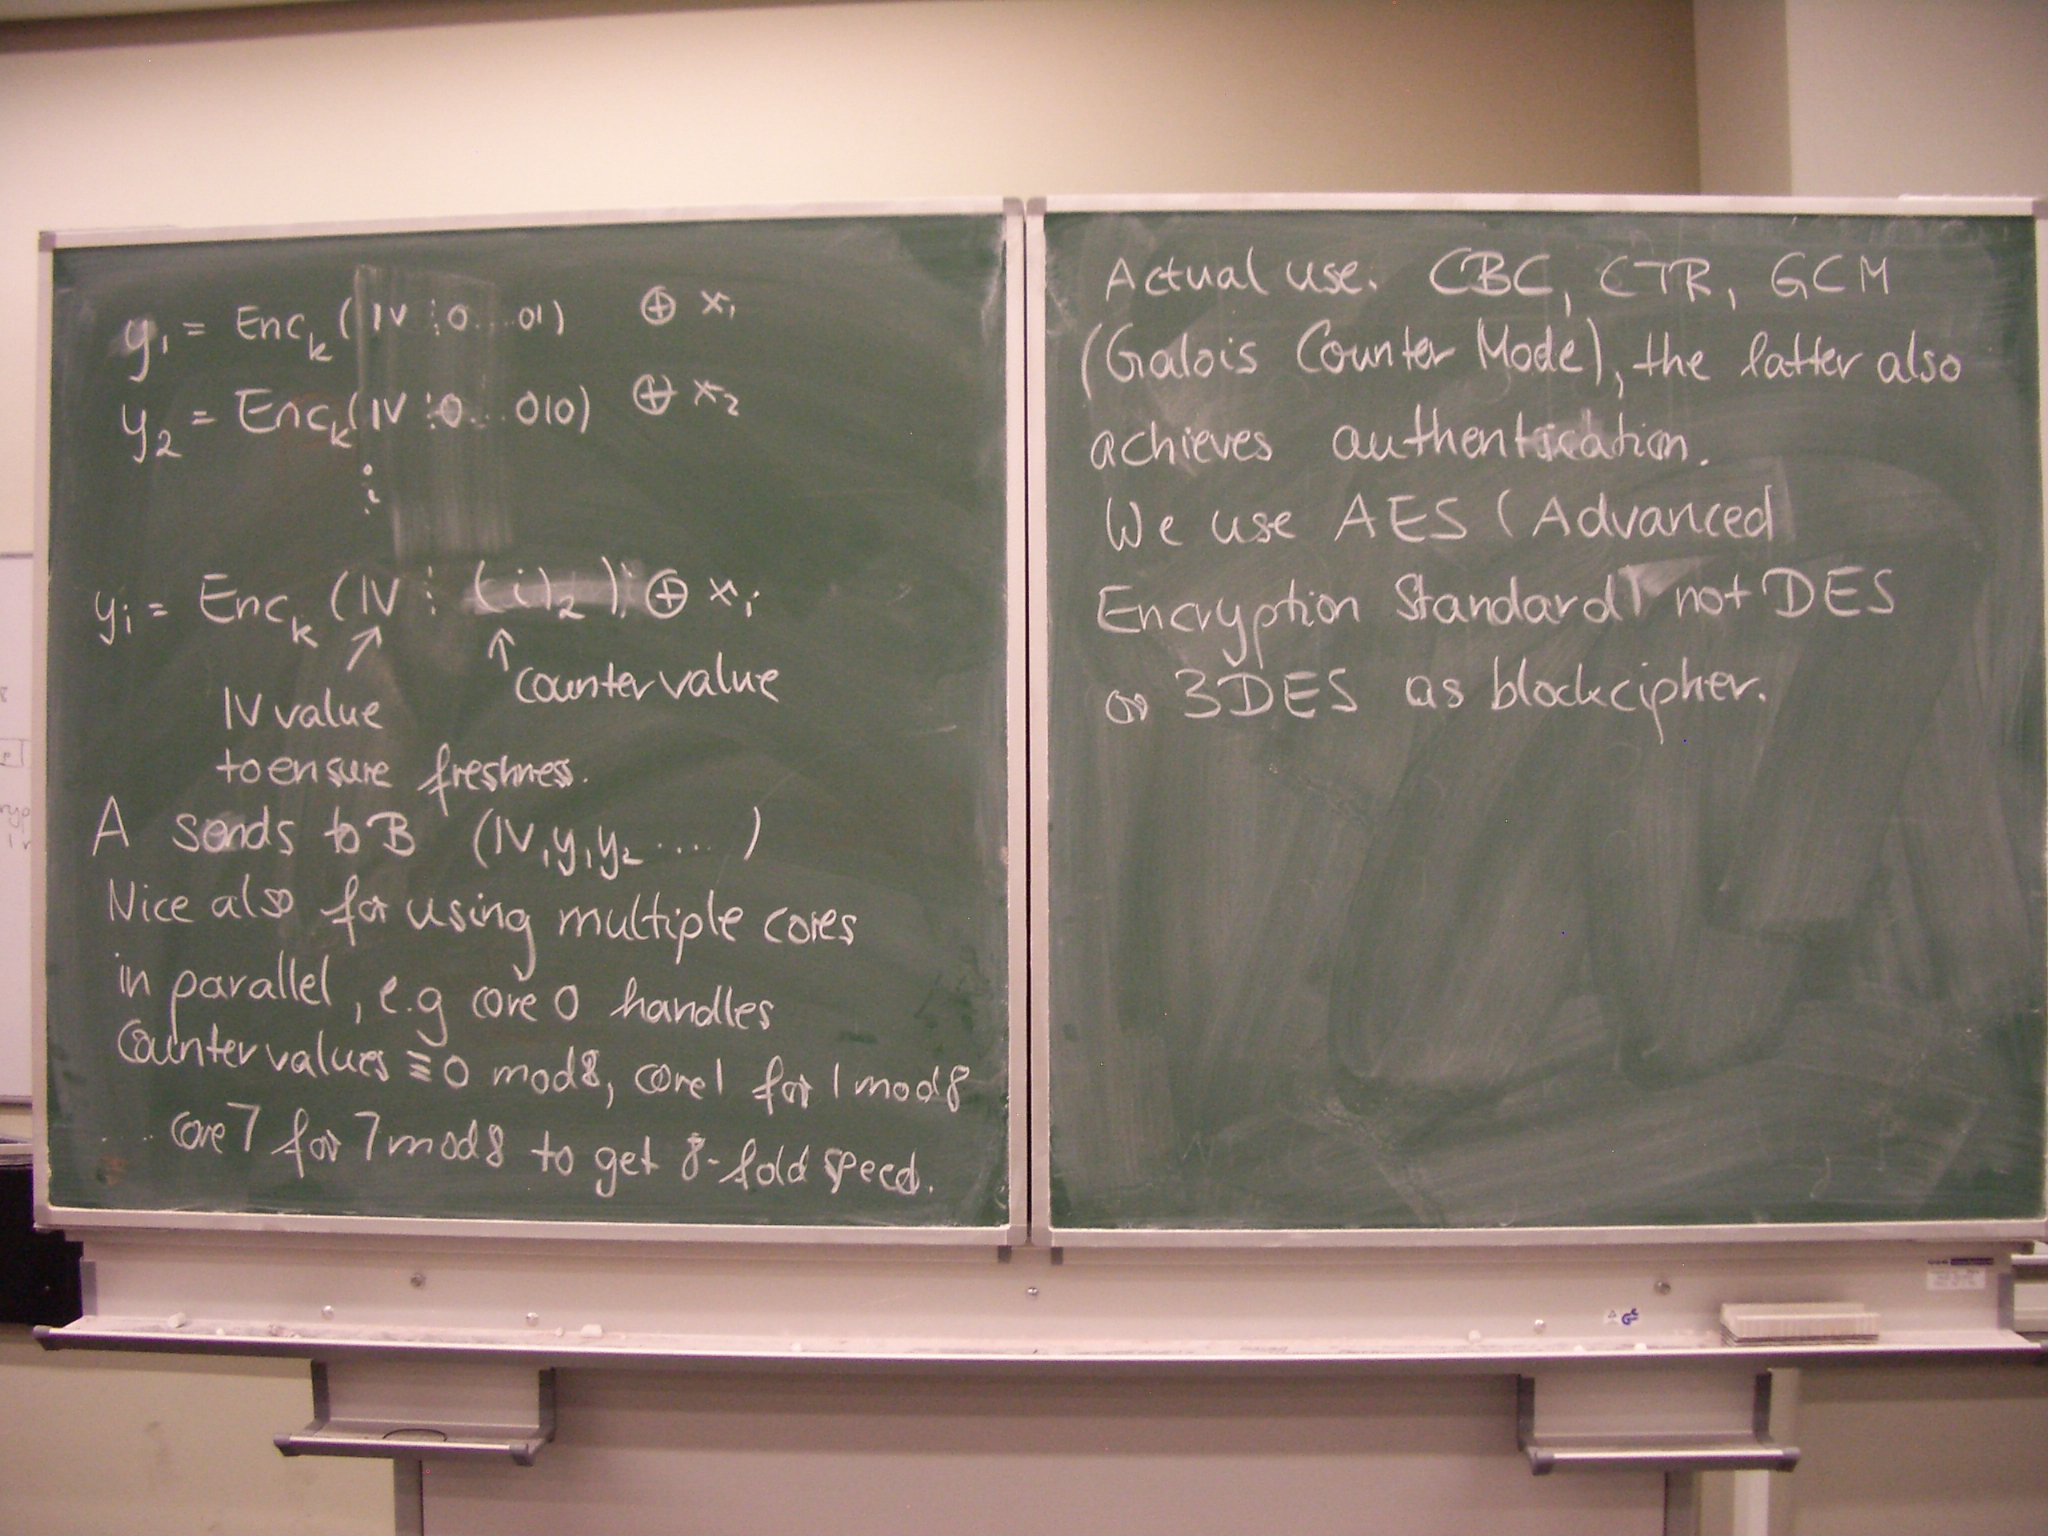 y₁ = Enc_k (IV ⋮ 0...01) ⊕ x₁
y₂ = Enc_k (IV ⋮ 0...010) ⊕ x₂
⋮
yᵢ = Enc_k (IV ⋮ (i)₂) ⊕ xᵢ
↗ ↑
counter value
IV value
to ensure freshness.
A sends to B (IV, y₁ y₂ ....)
Nice also for using multiple cores
in parallel, e.g core 0 handles
counter values ≡ 0 mod 8, core 1 for 1 mod 8
.... core 7 for 7 mod 8 to get 8-fold speed.
Actual use. CBC, CTR, GCM
(Galois Counter Mode), the latter also
achieves authentication.
We use AES (Advanced
Encryption Standard) not DES
or 3DES as blockcipher.